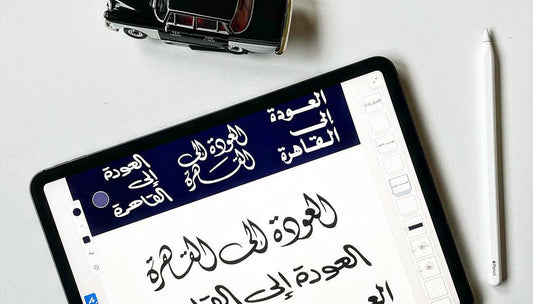 العودة
إلى
القاهرة
العودة إلى
القاهرة
العودة
إلى
القاهرة
العودة إلى القاهرة
العودة إلى القا
العو
Pencil